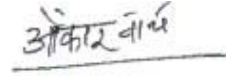 ओंकार वार्थ